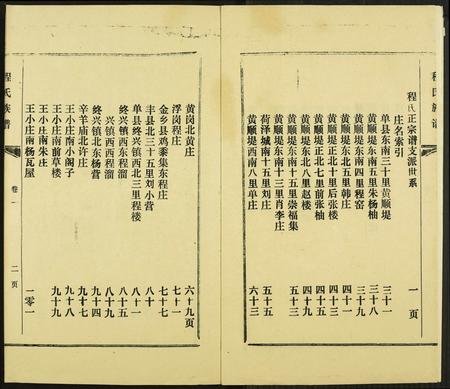 程氏族谱
程氏正宗谱支派世系
庄名索引
单县东南三十里黄顺堤 三十一
黄顺堤东南五里朱杨柚 三十八
黄顺堤东南四里程窑 三十九
黄顺堤东北五里韩庄 四十一
黄顺堤正北十里后张楼 四十四
黄顺堤正北七里前张柚 四十五
黄顺堤东北八里赵楼 四十九
黄顺堤东南十五里崇福集 五十三
黄顺堤东南十三里肖李庄
荷泽城南十五里刘庄 五十五
黄顺堤西南八里单庄 六十三
一页
黄岗北黄庄 六十九页
浮岗程庄 七十一
金乡县鸡黍集东程庄 七十七
丰县北三十五里刘小营 八十
单县终兴镇西北三里程楼 八十一
终兴镇西程溜 八十五
兴镇西西程溜 八十九
终兴镇北东杨营 九十四
辛羊庙北许庄 九十七
王小庄南小阁子 九十八
王小庄南前草楼 九十九
王小庄南朱庄
王小庄南杨瓦屋 一零一
程氏族谱
卷一
二页